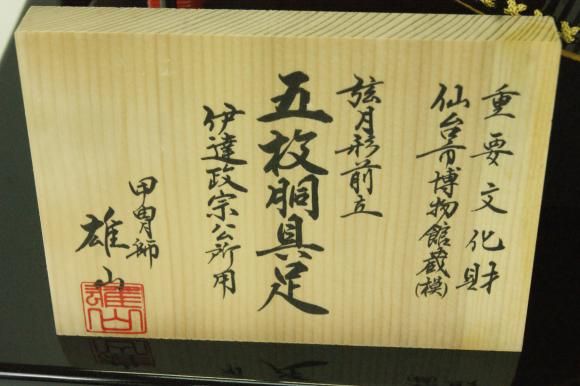 重要文化財
仙台市博物館蔵(模)
弦月形前立
五枚胴具足
伊達政宗公所用
甲冑師
雄山
雄山